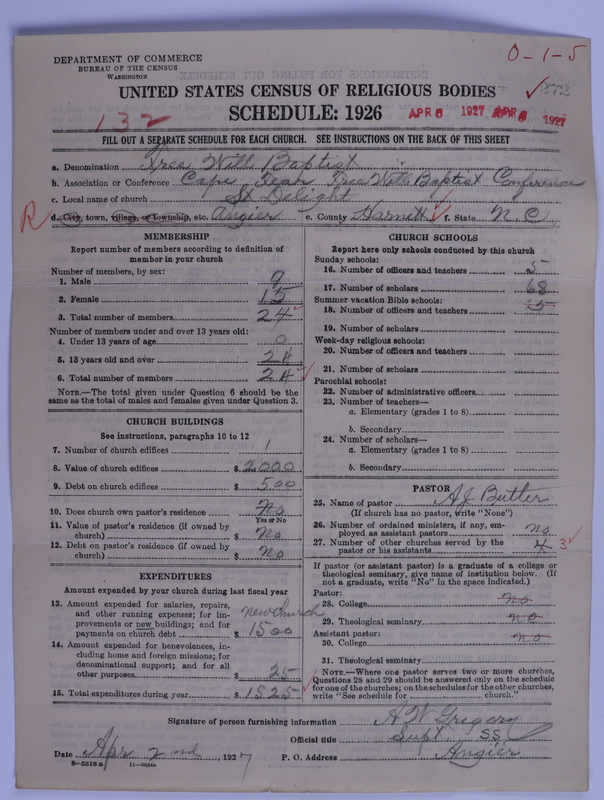 DEPARTMENT OF COMMERCE
BUREAU OF THE CENSUS
WASHINGTON
0-1-5
272
UNITED STATES CENSUS OF RELIGIOUS BODIES
SCHEDULE: 1926
132
APR 6 1927 APR 6 1927
FILL OUT A SEPARATE SCHEDULE FOR EACH CHURCH. SEE INSTRUCTIONS ON THE BACK OF THIS SHEET
a. Denomination Free Will Baptist
b. Association or Conference Cape Fear Free Will Baptist Conference
c. Local name of church St Delight
R d. City, town, village, or township, etc. Angier e. County Harnett f. State N C
MEMBERSHIP
Report number of members according to definition of member in your church
Number of members, by sex:
1. Male 9
2. Female 15
3. Total number of members 24
Number of members under and over 13 years old:
4. Under 13 years of age 0
5. 13 years old and over 24
6. Total number of members 24
NOTE.—The total given under Question 6 should be the same as the total of males and females given under Question 3.
CHURCH BUILDINGS
See instructions, paragraphs 10 to 12
7. Number of church edifices 1
8. Value of church edifices $ 2000
9. Debt on church edifices $ 500
10. Does church own pastor's residence? No
Yes or No
11. Value of pastor's residence (if owned by church) $ No
12. Debt on pastor's residence (if owned by church) $ No
EXPENDITURES
Amount expended by your church during last fiscal year
13. Amount expended for salaries, repairs, and other running expenses; for improvements or new buildings; and for payments on church debt new church $ 1500
14. Amount expended for benevolences, including home and foreign missions; for denominational support; and for all other purposes $ 25
15. Total expenditures during year $ 1525
CHURCH SCHOOLS
Report here only schools conducted by this church
Sunday schools:
16. Number of officers and teachers 5
17. Number of scholars 68
Summer vacation Bible schools:
18. Number of officers and teachers
19. Number of scholars
Week-day religious schools:
20. Number of officers and teachers
21. Number of scholars
Parochial schools:
22. Number of administrative officers
23. Number of teachers—
a. Elementary (grades 1 to 8)
b. Secondary
24. Number of scholars—
a. Elementary (grades 1 to 8)
b. Secondary
PASTOR
25. Name of pastor A J Butler
(If church has no pastor, write "None")
26. Number of ordained ministers, if any, employed as assistant pastors no
27. Number of other churches served by the pastor or his assistants 4 3
If pastor (or assistant pastor) is a graduate of a college or theological seminary, give name of institution below. (If not a graduate, write "No" in the space indicated.)
Pastor:
28. College no
29. Theological seminary no
Assistant pastor:
30. College no
31. Theological seminary
NOTE.—Where one pastor serves two or more churches, Questions 28 and 29 should be answered only on the schedule for one of the churches; on the schedules for the other churches, write "See schedule for church."
Signature of person furnishing information A W Gregory
Official title Supt SS
Date Apr 2nd 1927 P. O. Address Angier
8-5518a 11-9051a